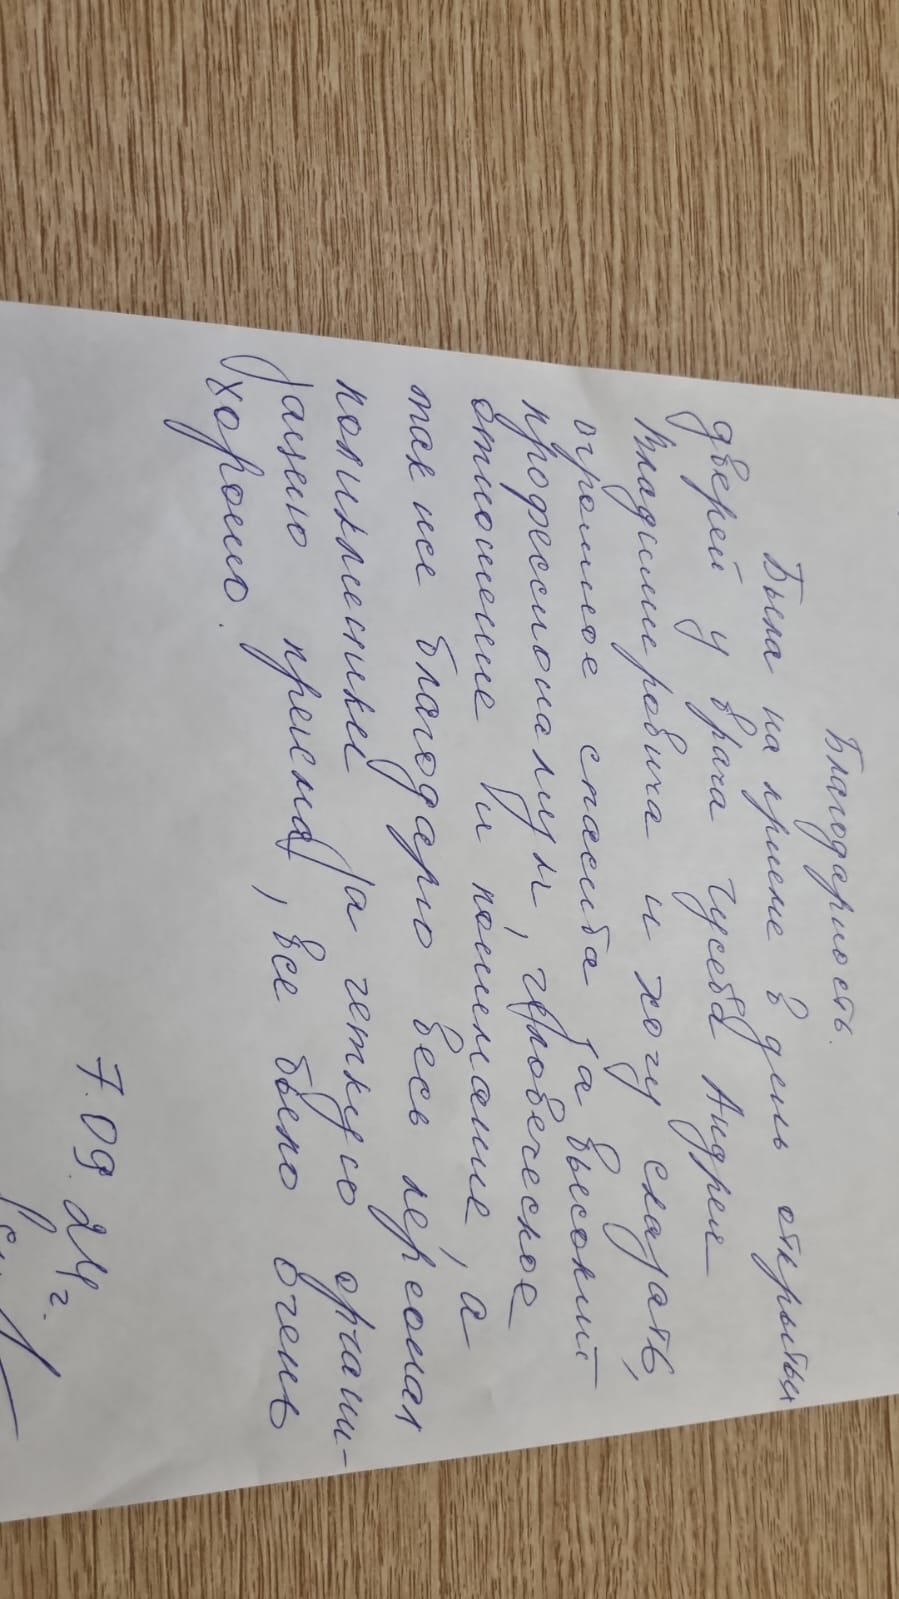 Благодарность.
Была на приеме в день открытых
дверей у врача Гусева Андрея
Владимировича и хочу сказать,
огромное спасиба за высокий
профессионализм, человеческое
отношение и понимание, а
так же благодарю весь персонал
поликлиники за четкую органи-
зацию приема, все было очень
хорошо.
7.09.24г.